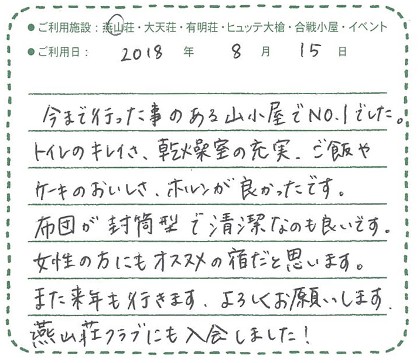 ●ご利用施設：燕山荘・大天荘・有明荘・ヒュッテ大槍・合戦小屋・イベント
●ご利用日：2018年8月15日
今まで行った事のある山小屋でNO.1でした。
トイレのキレイさ、乾燥室の充実、ご飯や
ケーキのおいしさ、ホルンが良かったです。
布団が封筒型で清潔なのも良いです。
女性の方にもオススメの宿だと思います。
また来年も行きます、よろしくお願いします。
燕山荘クラブにも入会しました！